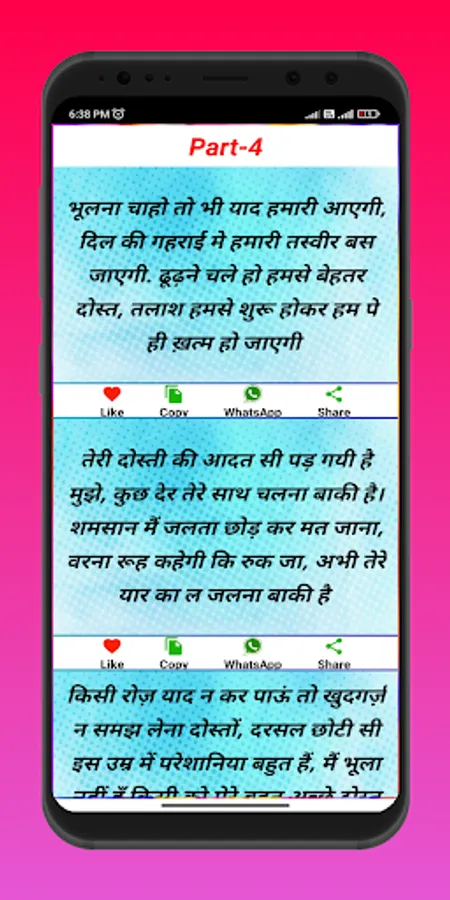 6:38 PM
Part-4
भूलना चाहो तो भी याद हमारी आएगी,
दिल की गहराई मे हमारी तस्वीर बस
जाएगी. ढूढ़ने चले हो हमसे बेहतर
दोस्त, तलाश हमसे शुरू होकर हम पे
ही ख़त्म हो जाएगी
Like Copy WhatsApp Share
तेरी दोस्ती की आदत सी पड़ गयी है
मुझे, कुछ देर तेरे साथ चलना बाकी है।
शमसान मैं जलता छोड़ कर मत जाना,
वरना रूह कहेगी कि रुक जा, अभी तेरे
यार का ल जलना बाकी है
Like Copy WhatsApp Share
किसी रोज़ याद न कर पाऊं तो खुदगर्ज़
न समझ लेना दोस्तों, दरसल छोटी सी
इस उम्र में परेशानिया बहुत हैं, मैं भूला